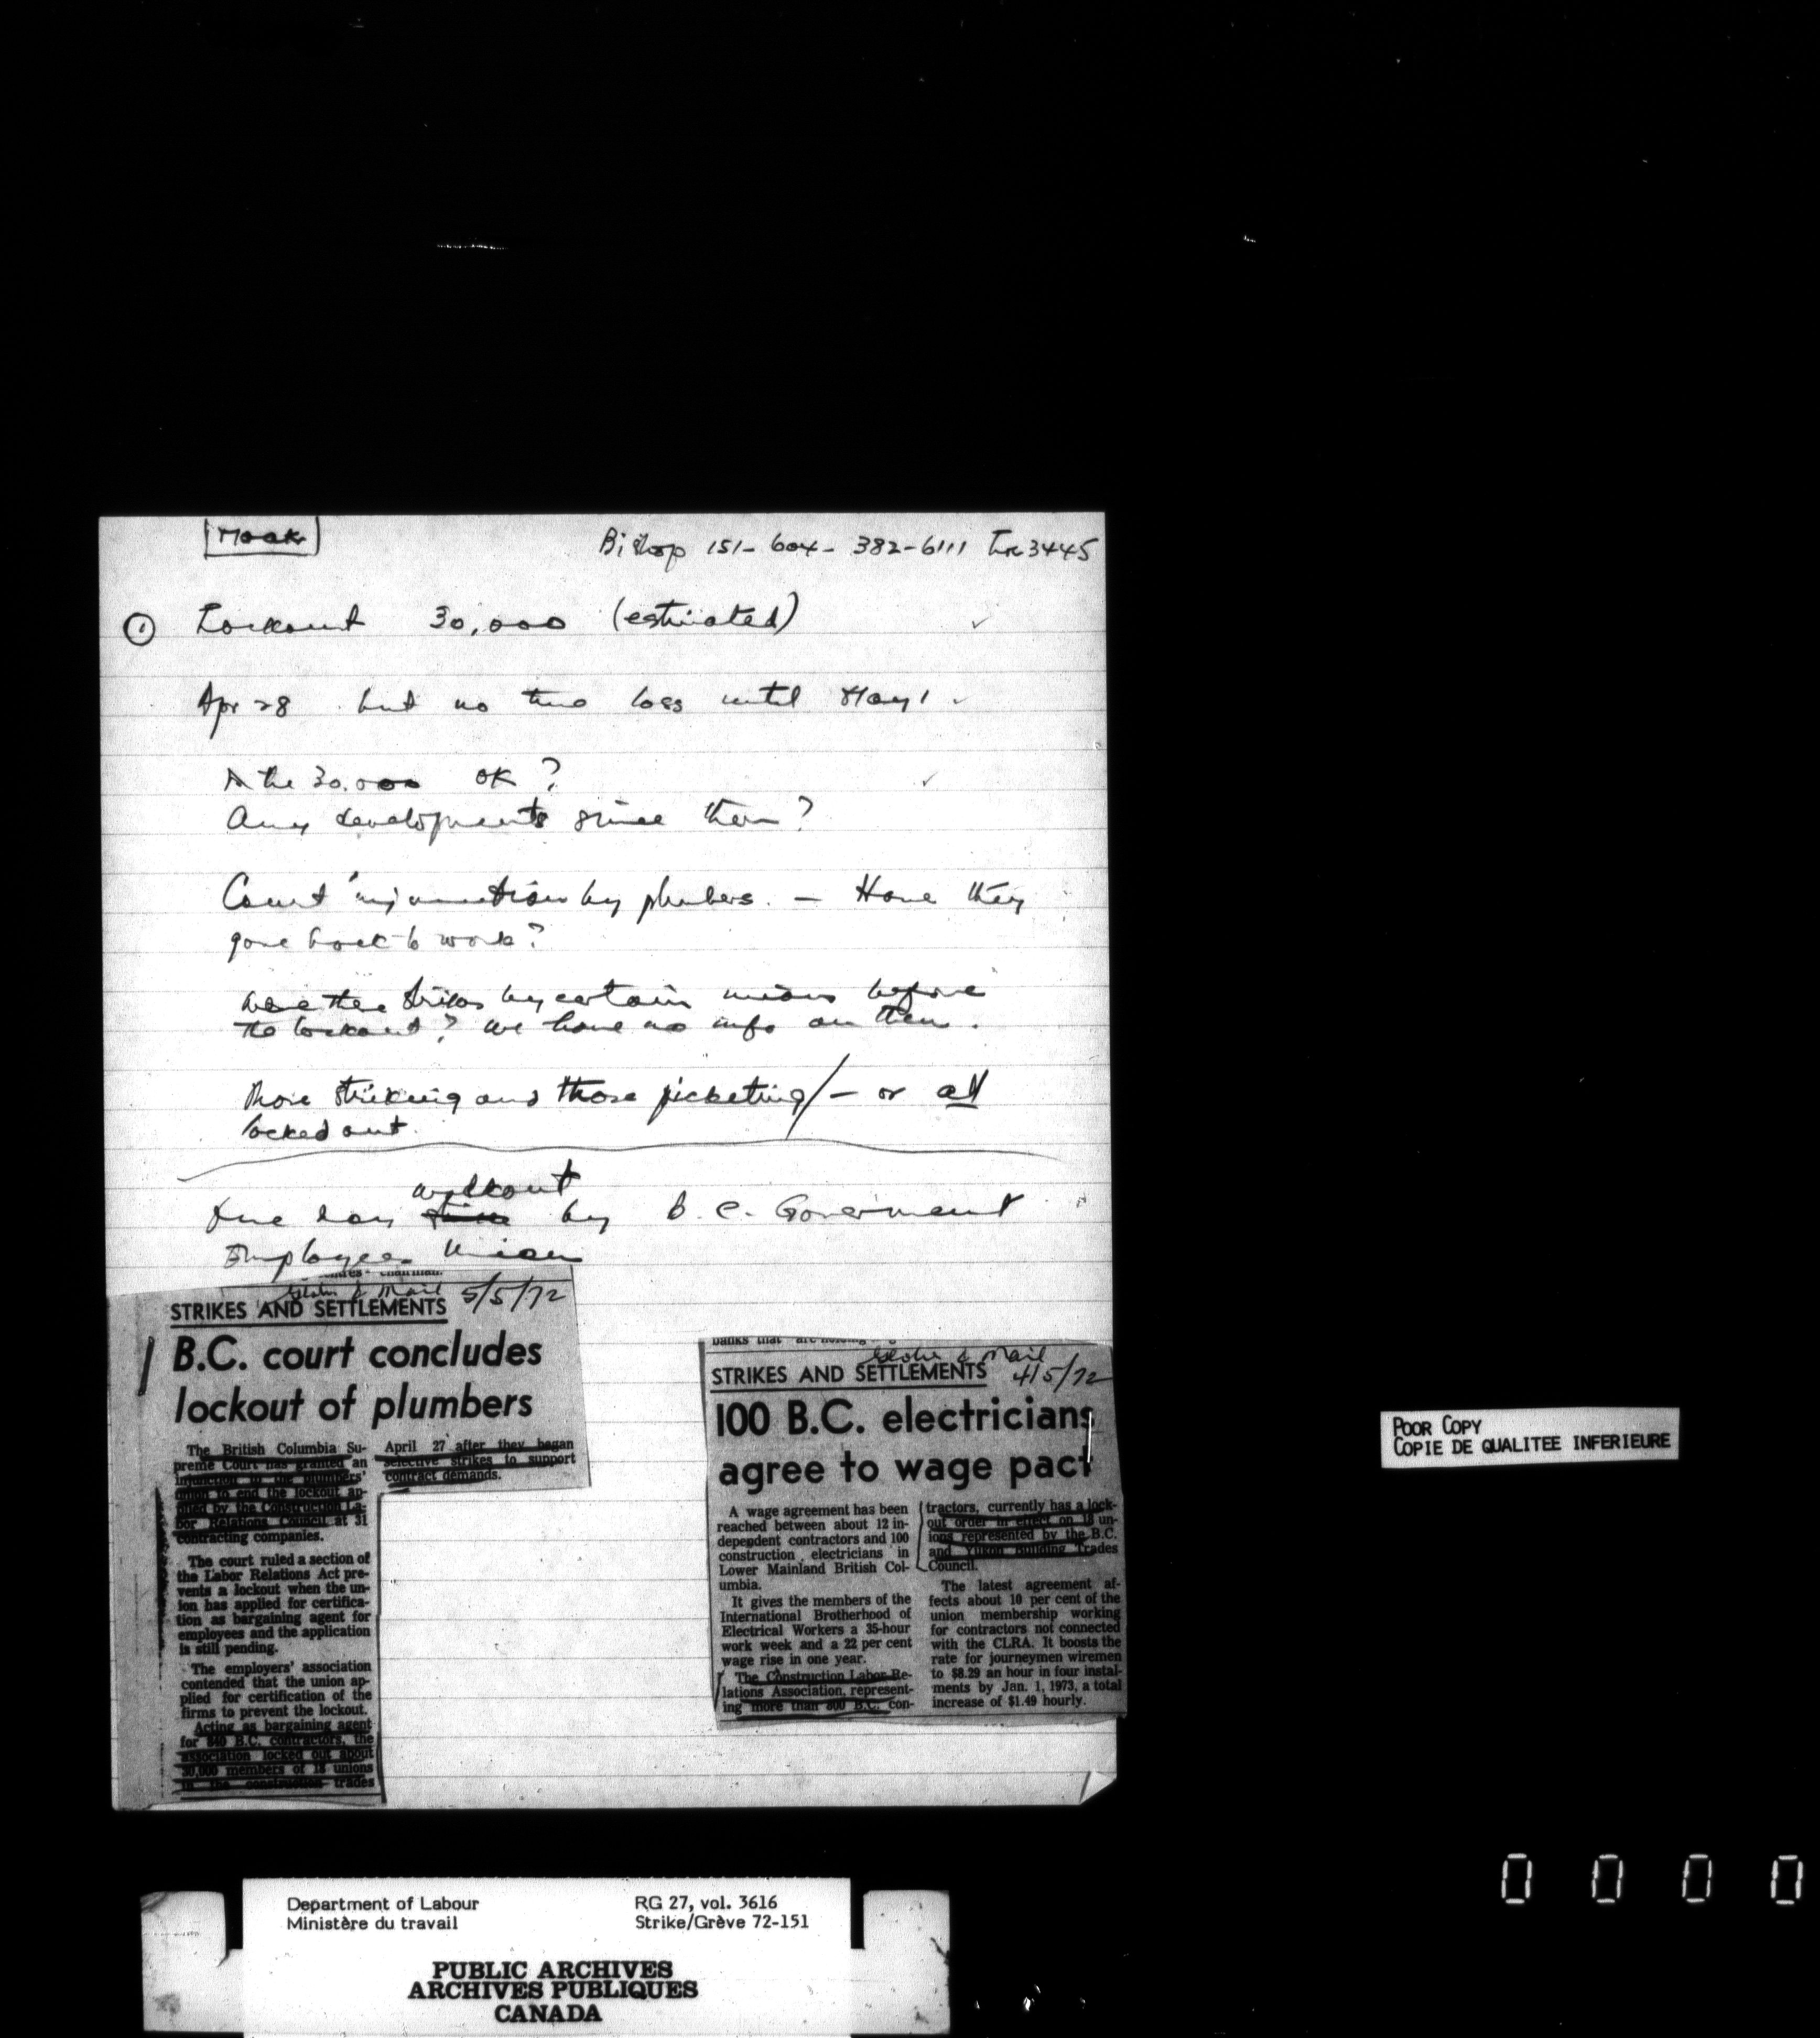 Mook
Bishop 151-604-382-6111 Loc 3445
① Lockout 30,000 (estimated) ✓
Apr 28 but no time loss until May 1 ✓
Is the 30,000 OK? ✓
Any developments since then?
Court injunction by plumbers. — Have they
gone back to work?
Were there strikes by certain unions before
the lockout? We have no info on them.
those striking and those picketing/ — or all
locked out.
walkout
One day by B.C. Government
Employees Union
Globe & Mail 5/5/72
STRIKES AND SETTLEMENTS
B.C. court concludes
lockout of plumbers
The British Columbia Su-
preme Court has granted an
injunction to the plumbers'
union to end the lockout ap-
plied by the Construction La-
bor Relations Council at 31
contracting companies.
The court ruled a section of
the Labor Relations Act pre-
vents a lockout when the un-
ion has applied for certifica-
tion as bargaining agent for
employees and the application
is still pending.
The employers' association
contended that the union ap-
plied for certification of the
firms to prevent the lockout.
Acting as bargaining agent
for 840 B.C. contractors, the
association locked out about
30,000 members of 18 unions
in the construction trades
April 27 after they began
selective strikes to support
contract demands.
banks that are holding
Globe & Mail
STRIKES AND SETTLEMENTS 4/5/72
100 B.C. electricians
agree to wage pact
A wage agreement has been
reached between about 12 in-
dependent contractors and 100
construction electricians in
Lower Mainland British Col-
umbia.
It gives the members of the
International Brotherhood of
Electrical Workers a 35-hour
work week and a 22 per cent
wage rise in one year.
The Construction Labor Re-
lations Association, represent-
ing more than 800 B.C. con-
tractors, currently has a lock-
out order in effect on 18 un-
ions represented by the B.C.
and Yukon Building Trades
Council.
The latest agreement af-
fects about 10 per cent of the
union membership working
for contractors not connected
with the CLRA. It boosts the
rate for journeymen wiremen
to $8.29 an hour in four instal-
ments by Jan. 1, 1973, a total
increase of $1.49 hourly.
POOR COPY
COPIE DE QUALITEE INFERIEURE
0 0 0 0
Department of Labour
Ministère du travail
RG 27, vol. 3616
Strike/Grève 72-151
PUBLIC ARCHIVES
ARCHIVES PUBLIQUES
CANADA